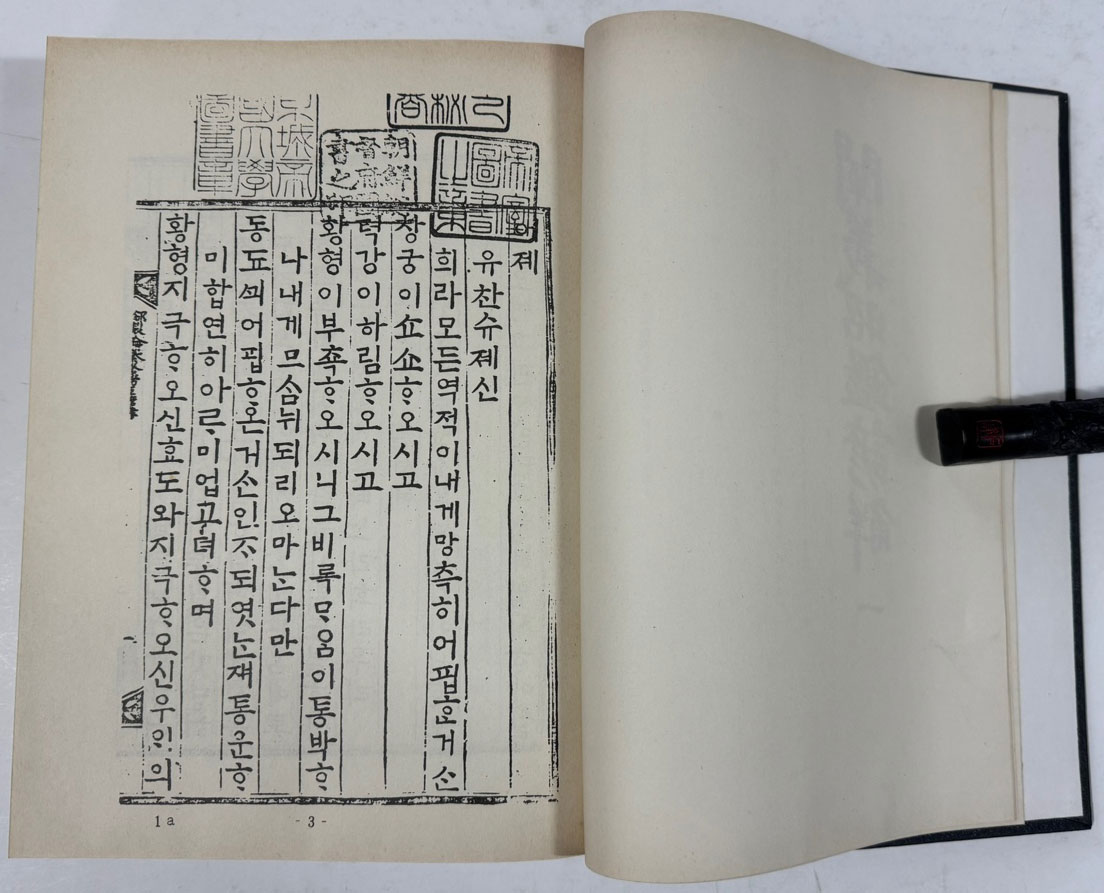 졔
유찬슈졔신
희라모든역적이내게망측히어핍ᄒᆞᆫ거ᄉᆞᆫ
창궁이쇼쇼ᄒᆞ오시고
텩강이하림ᄒᆞ오시고
황형이부쵹ᄒᆞ오시니그비록ᄆᆞ음이통박ᄒᆞ
나내게므ᄉᆞᆷ뉘되리오마ᄂᆞᆫ다만
동됴ᄭᅴ어핍ᄒᆞ온거ᄉᆞᆫ인ᄌᆞ되엿ᄂᆞᆫ쟤통운ᄒᆞ
미합연히아ᄅᆞ미업고뎌ᄒᆞ며
황형지극ᄒᆞ오신효도와지극ᄒᆞ오신우ᄋᆡ의
帝室圖書之章
1a
- 3 -